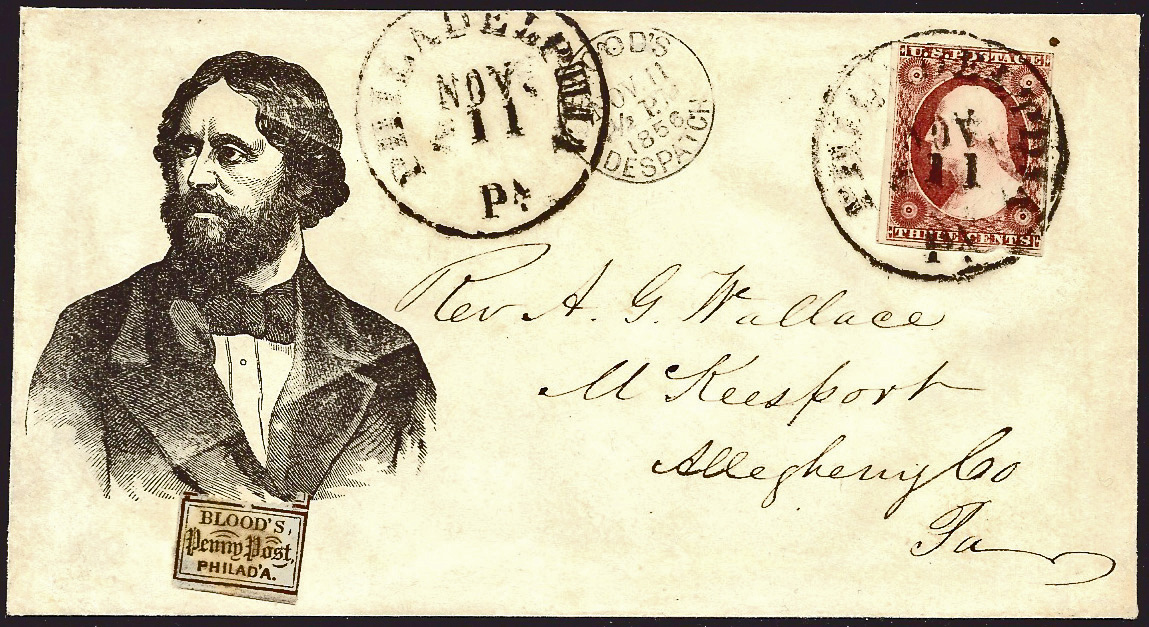 PHILADELPHIA
NOV
11
PA
BLOOD'S
NOV 11
1856
DESPATCH
U.S. POSTAGE
THREE CENTS
PHILADELPHIA
NOV
11
PA
Rev A. G. Wallace
McKeesport
Allegheny Co
Pa
BLOOD'S,
Penny Post,
PHILAD'A.